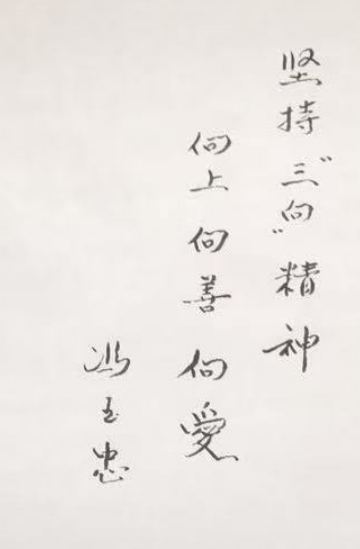 坚持“三向”精神
向上向善向爱
冯玉忠